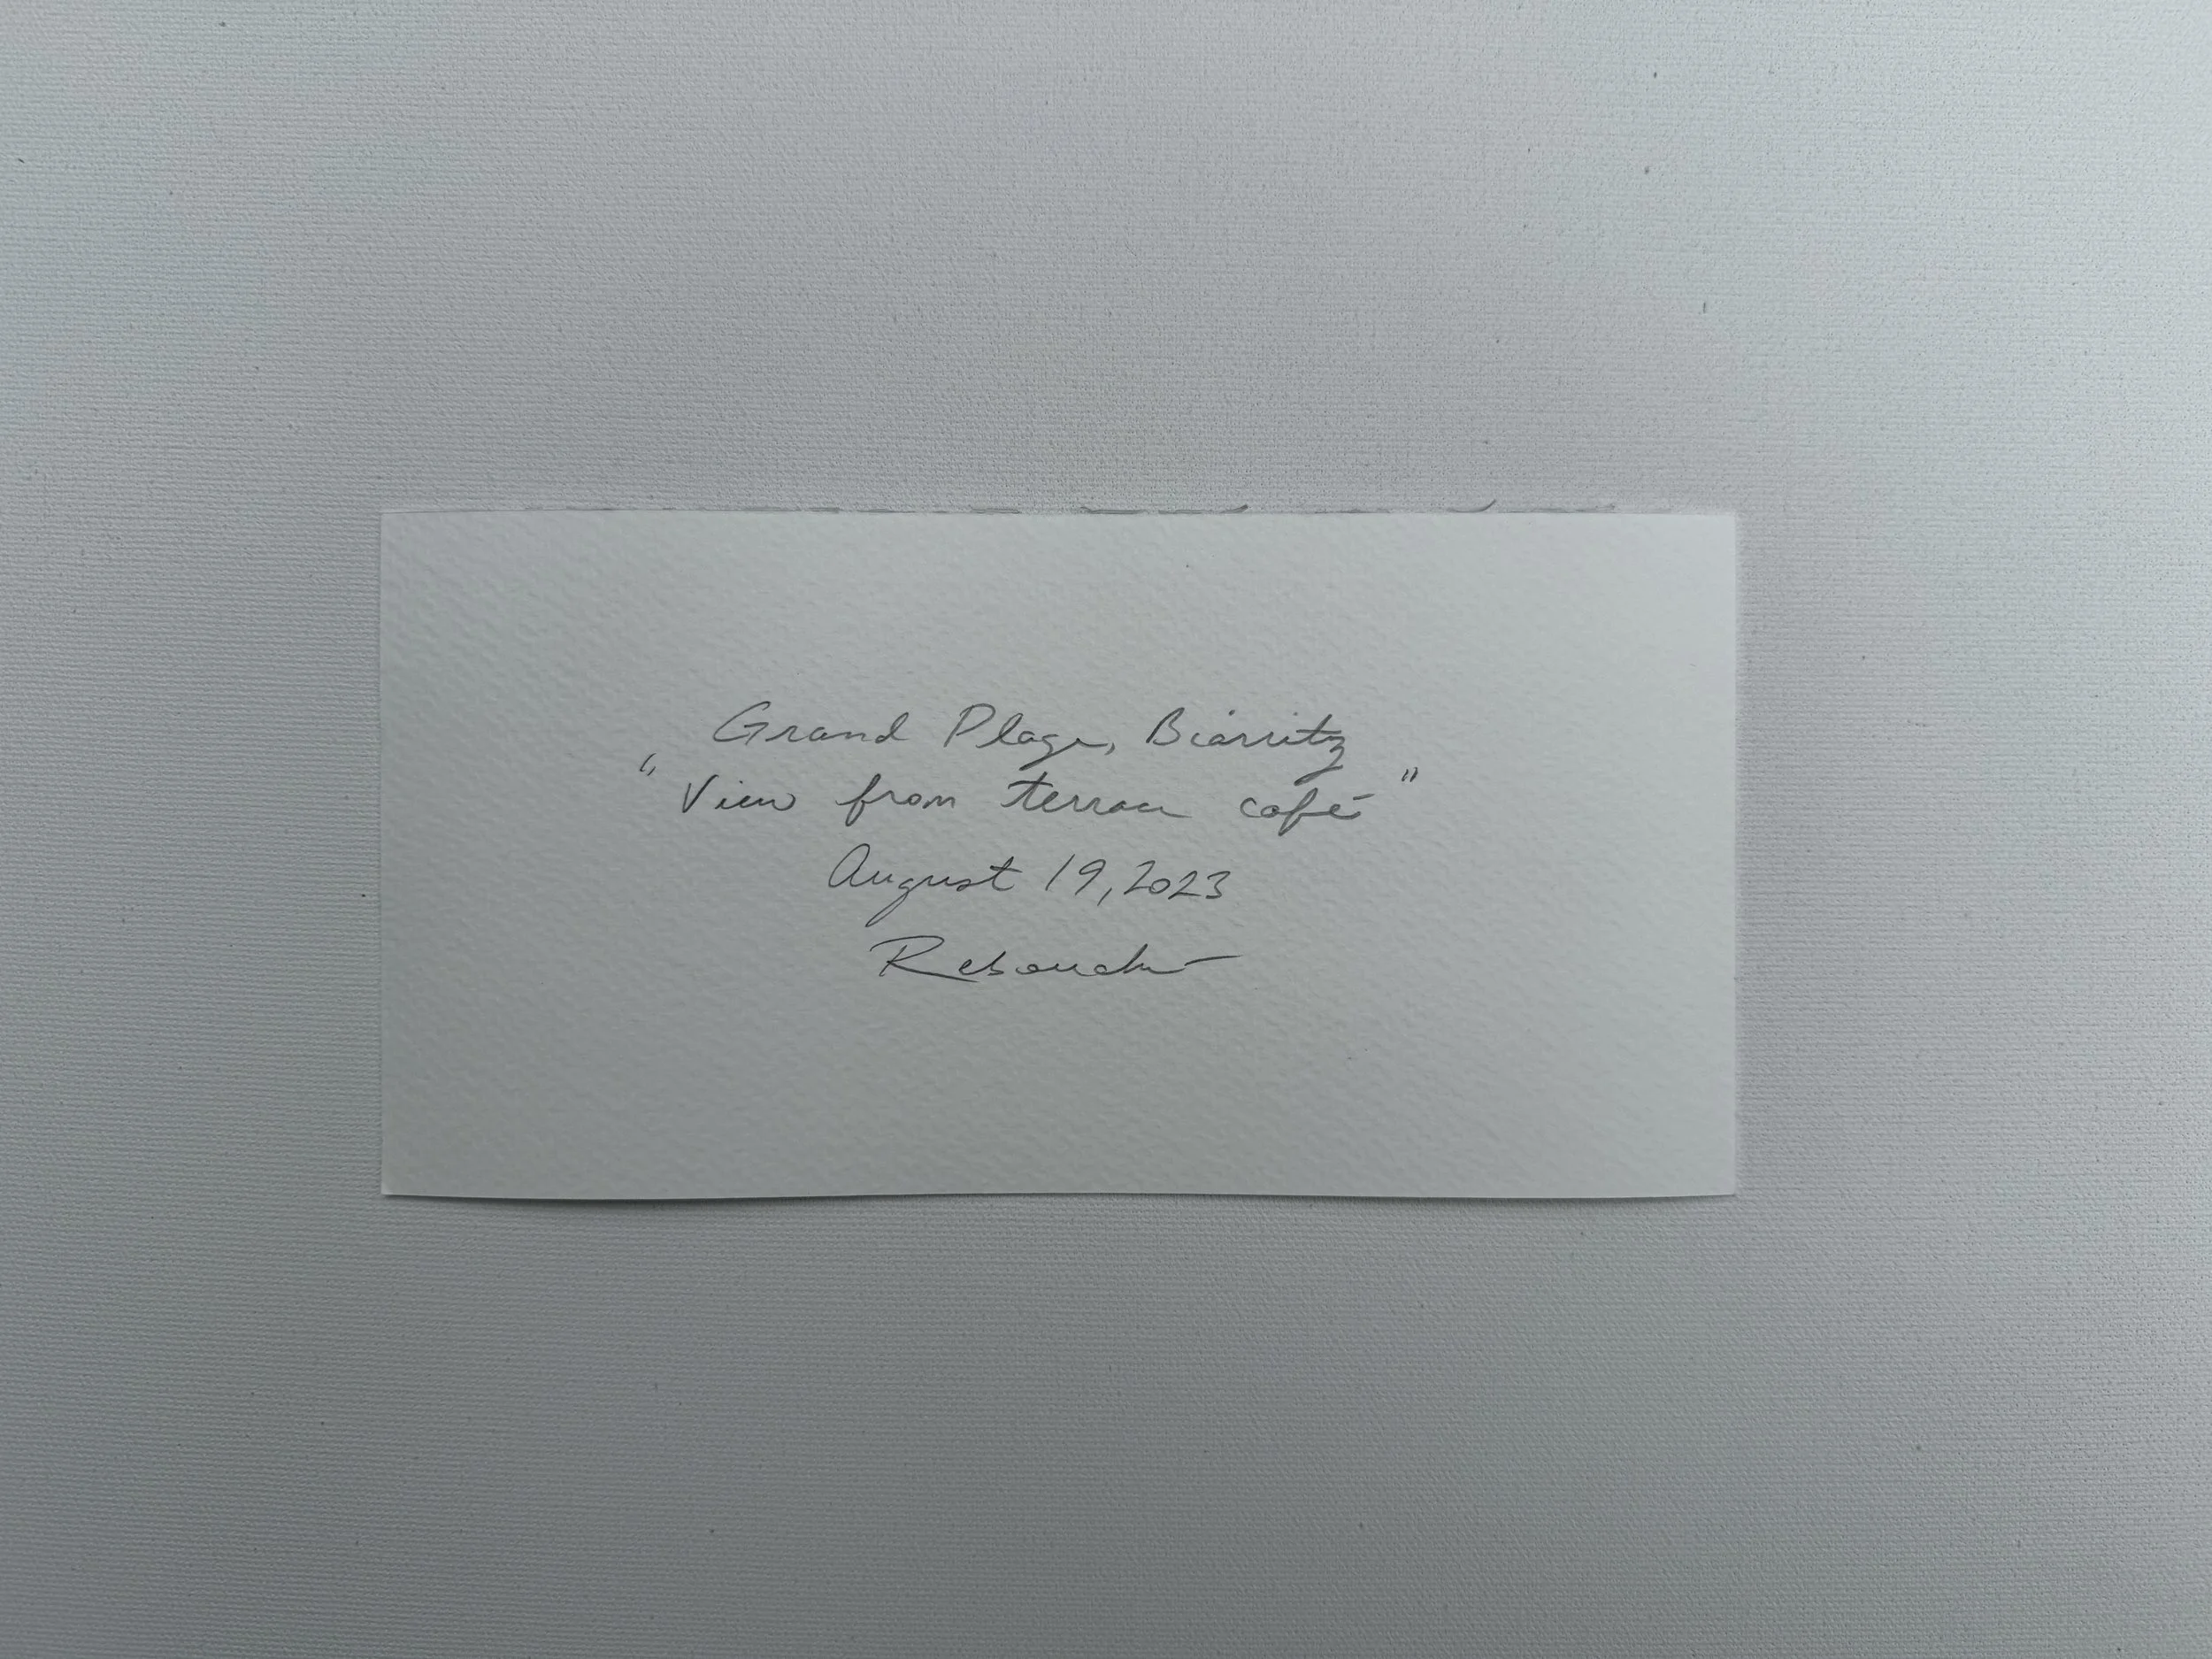 Grand Plage, Biarritz
"View from terrace café"
August 19, 2023